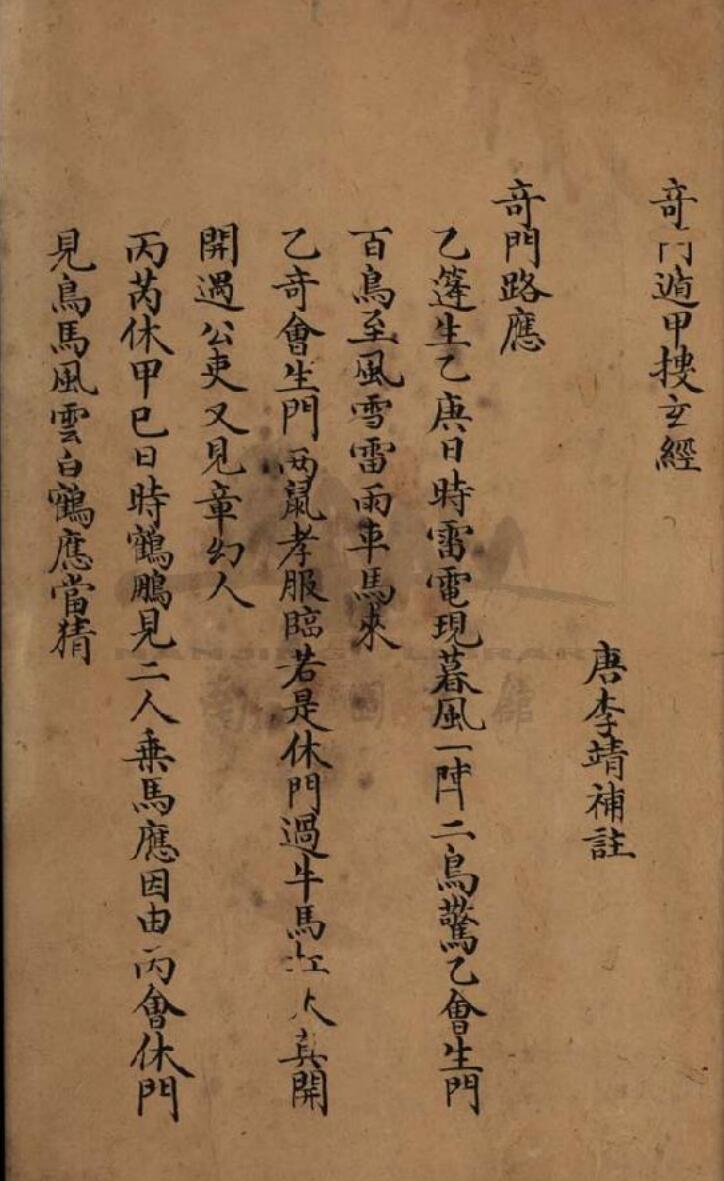 奇門遁甲捜玄經
唐李靖補註
奇門路應
乙蓬生乙庚日時雷電現暮風一陣二鳥驚乙會生門
百鳥至風雪雷雨車馬來
乙奇會生門兩鼠孝服臨若是休門過牛馬人真開
開過公吏又見章幻人
丙芮休甲巳日時鶴鵰見二人乗馬應因由丙會休門
見鳥馬風雲白鶴應當猜